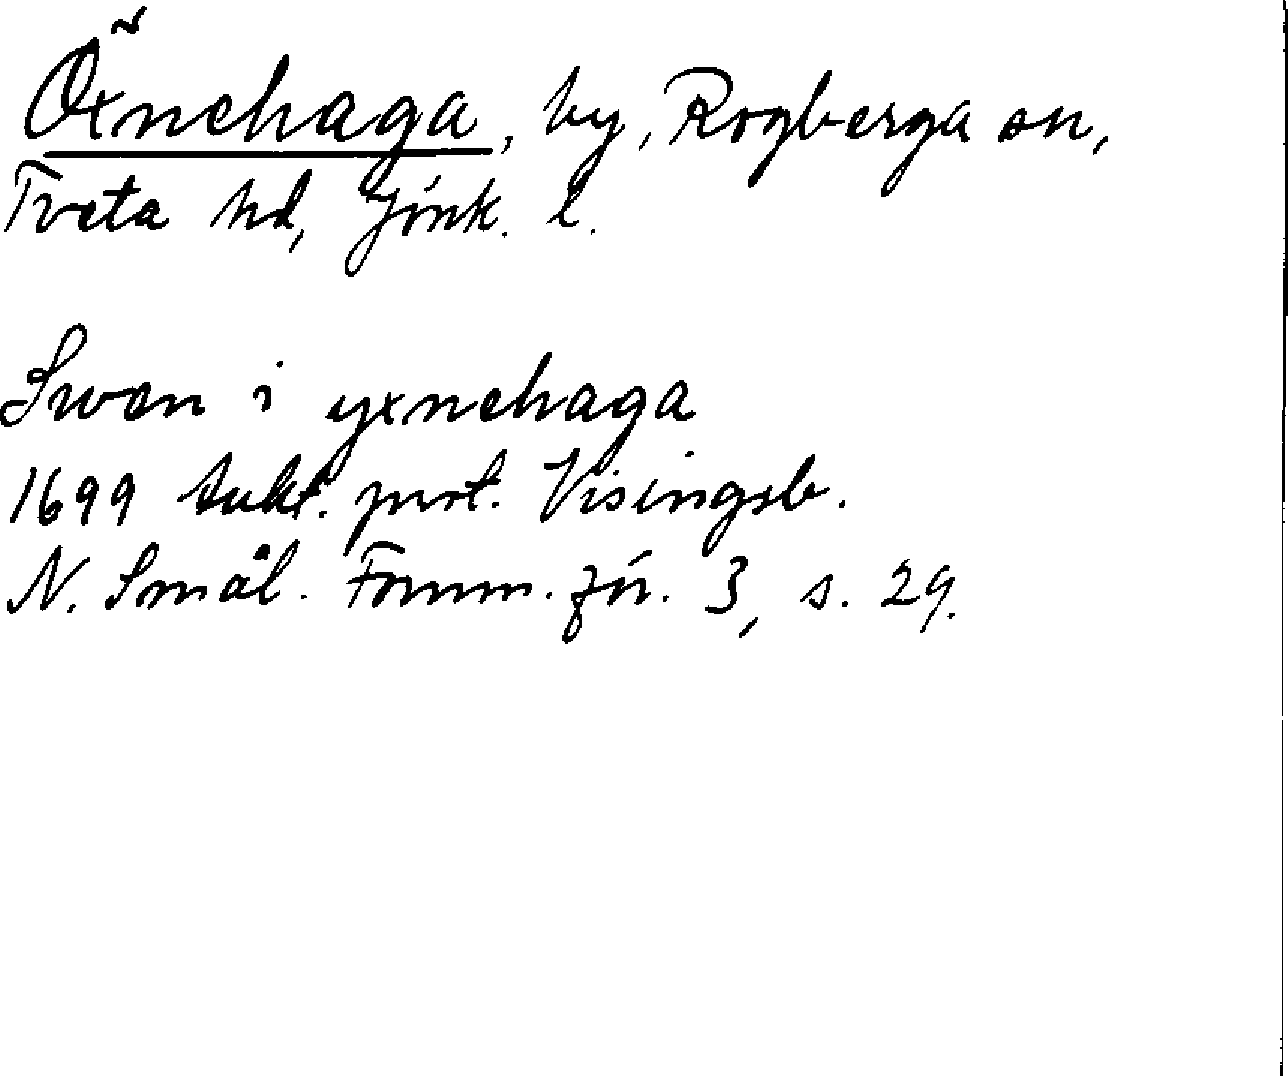 Öxnehaga, by, Rogberga sn,
Tveta hd, Jönk. l.
Swen i yxnehaga
1699 tukt. prot. Visingsb.
N. Smål. Fornm.för. 3, s. 29.